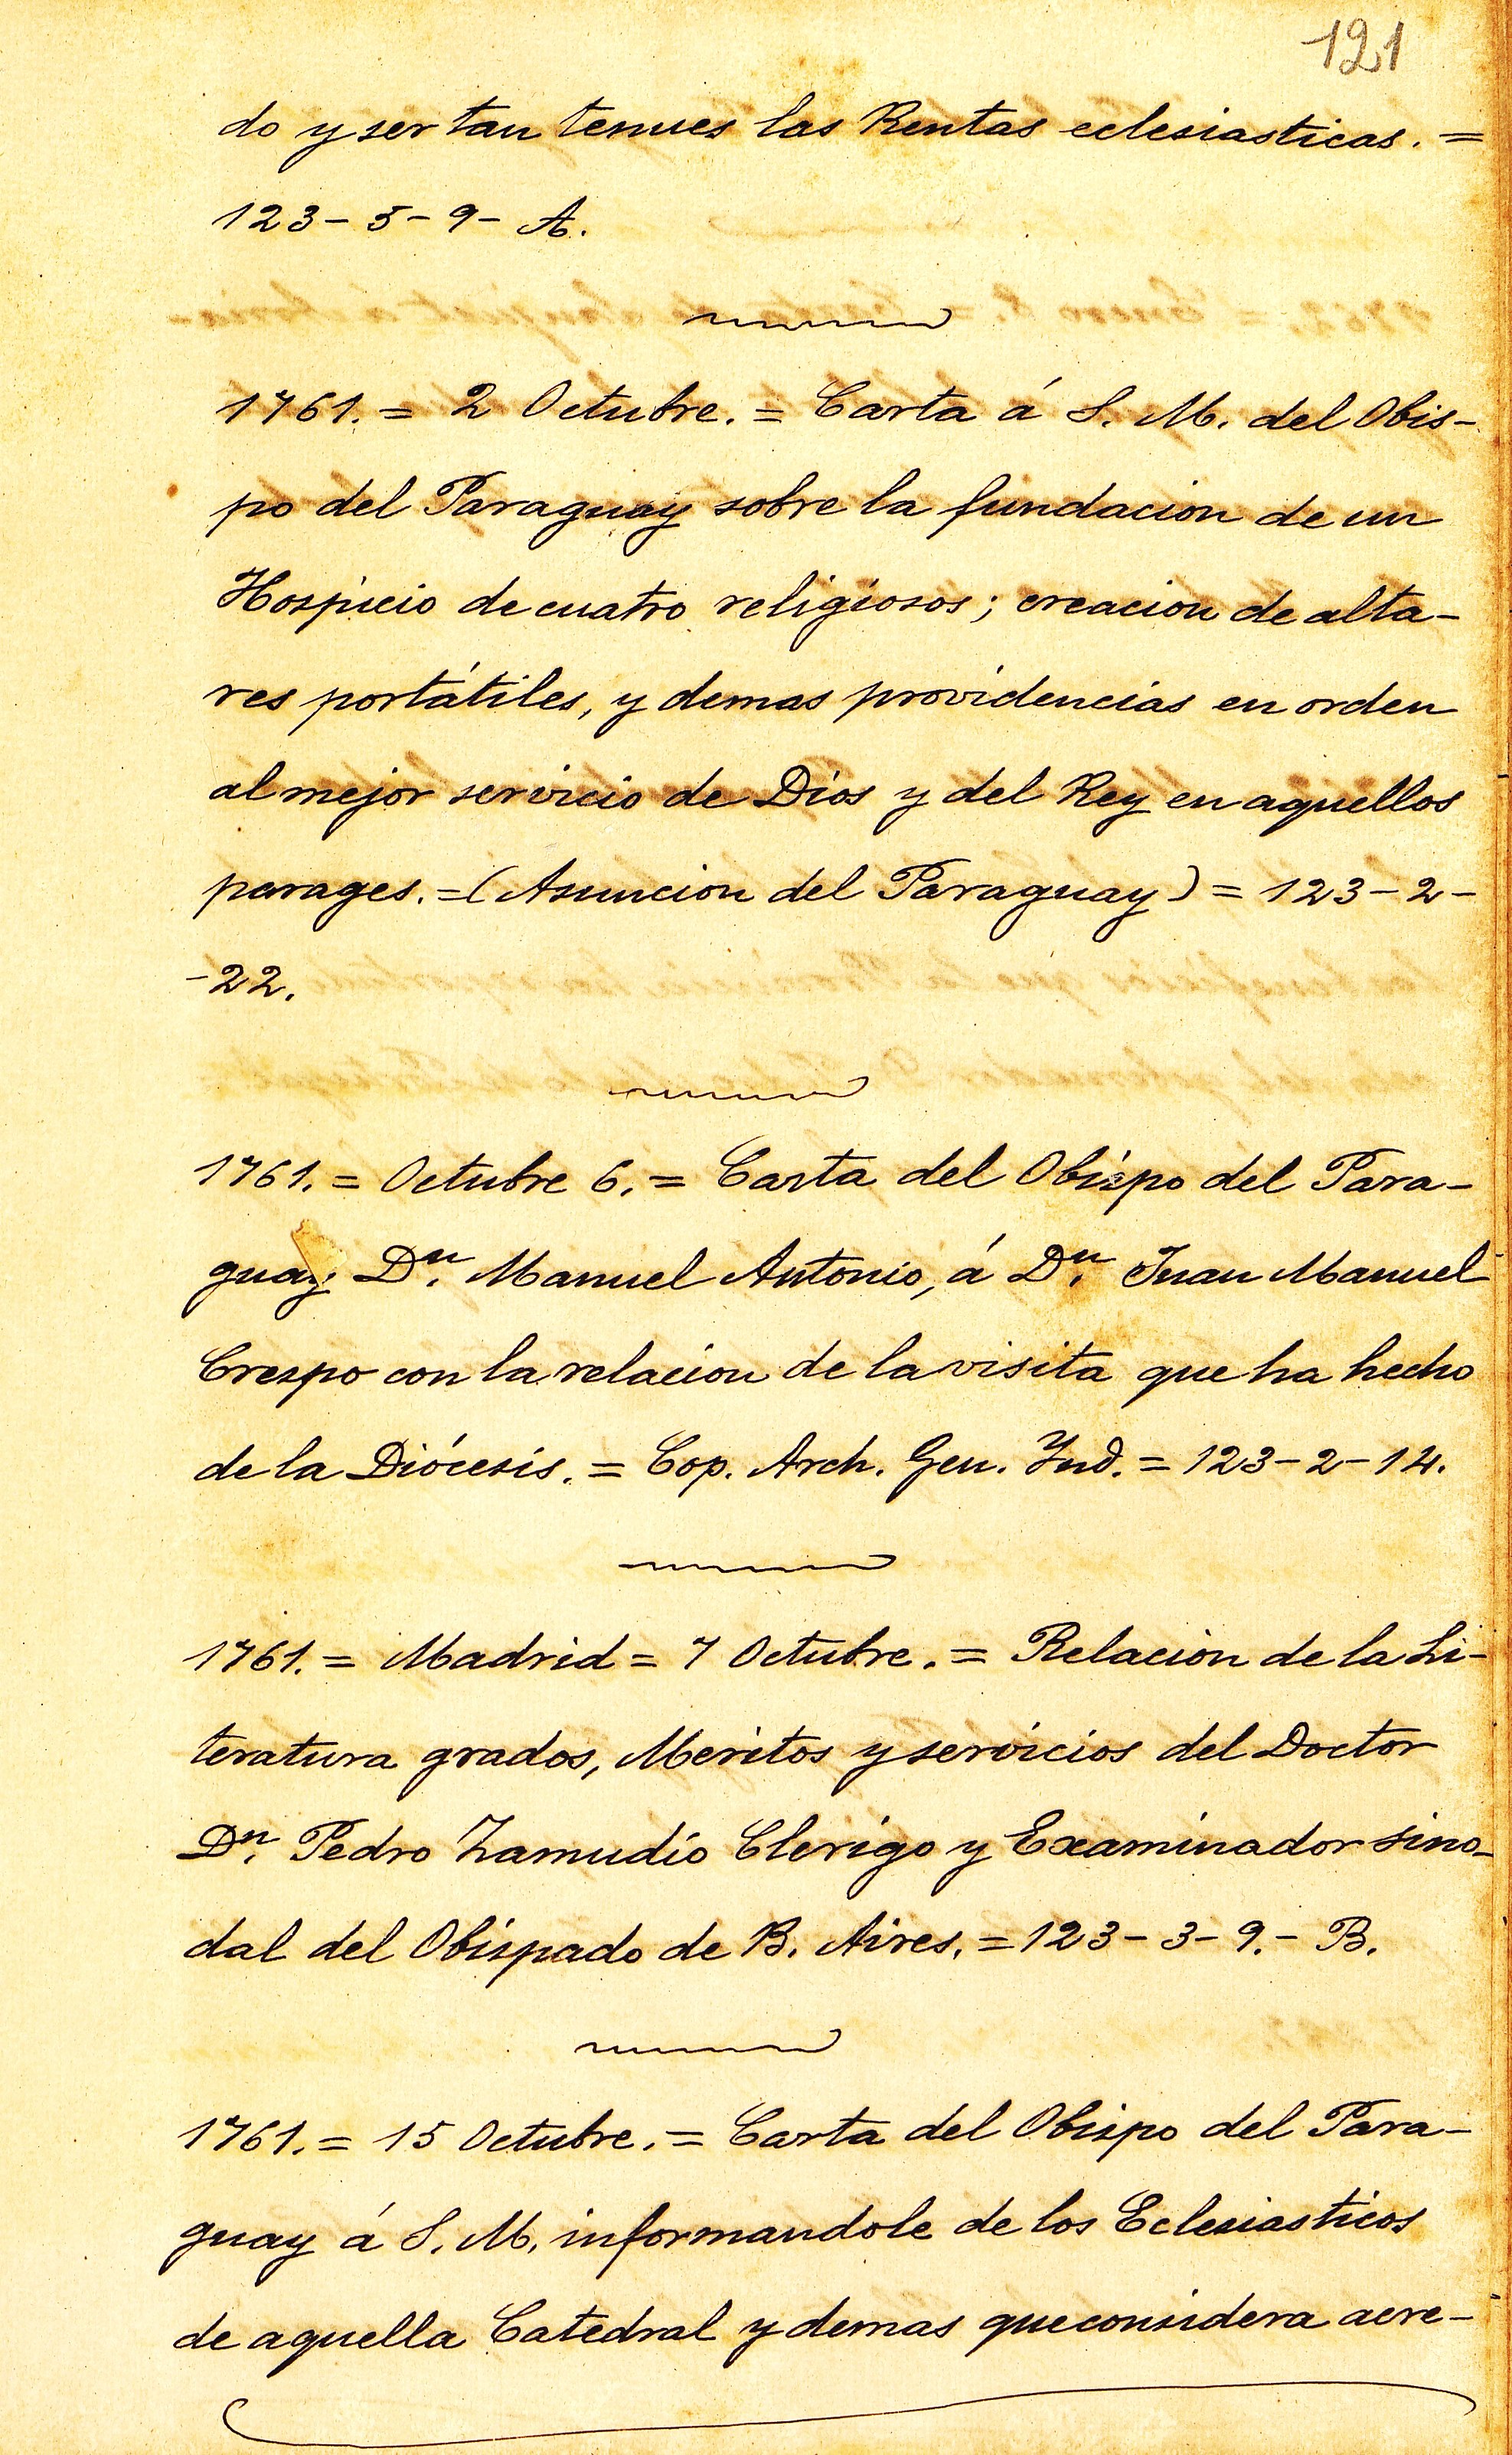 121
do y ser tan tenues las Rentas eclesiasticas. =
123-5-9- A.
1761. = 2 Octubre. = Carta á S. M. del Obis-
po del Paraguay sobre la fundacion de un
Hospicio de cuatro religiosos; creacion de alta-
res portátiles, y demas providencias en orden
al mejor servicio de Dios y del Rey en aquellos
parages. = (Asuncion del Paraguay) = 123-2-
-22.
1761. = Octubre 6. = Carta del Obispo del Para-
guay Dⁿ. Manuel Antonio, á Dⁿ. Juan Manuel
Crespo con la relacion de la visita que ha hecho
de la Diócesis. = Cop. Arch. Gen. Ind. = 123-2-14.
1761. = Madrid = 7 Octubre. = Relacion de la Li-
teratura grados, Meritos y servicios del Doctor
Dⁿ. Pedro Zamudio Clerigo y Examinador sino-
dal del Obispado de B. Aires. = 123-3-9.- B.
1761. = 15 Octubre. = Carta del Obispo del Para-
guay á S. M. informandole de los Eclesiasticos
de aquella Catedral y demas que considera acre-